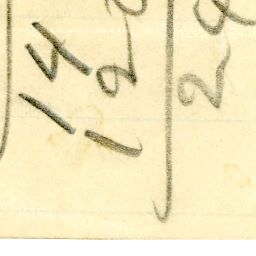 14
12
24